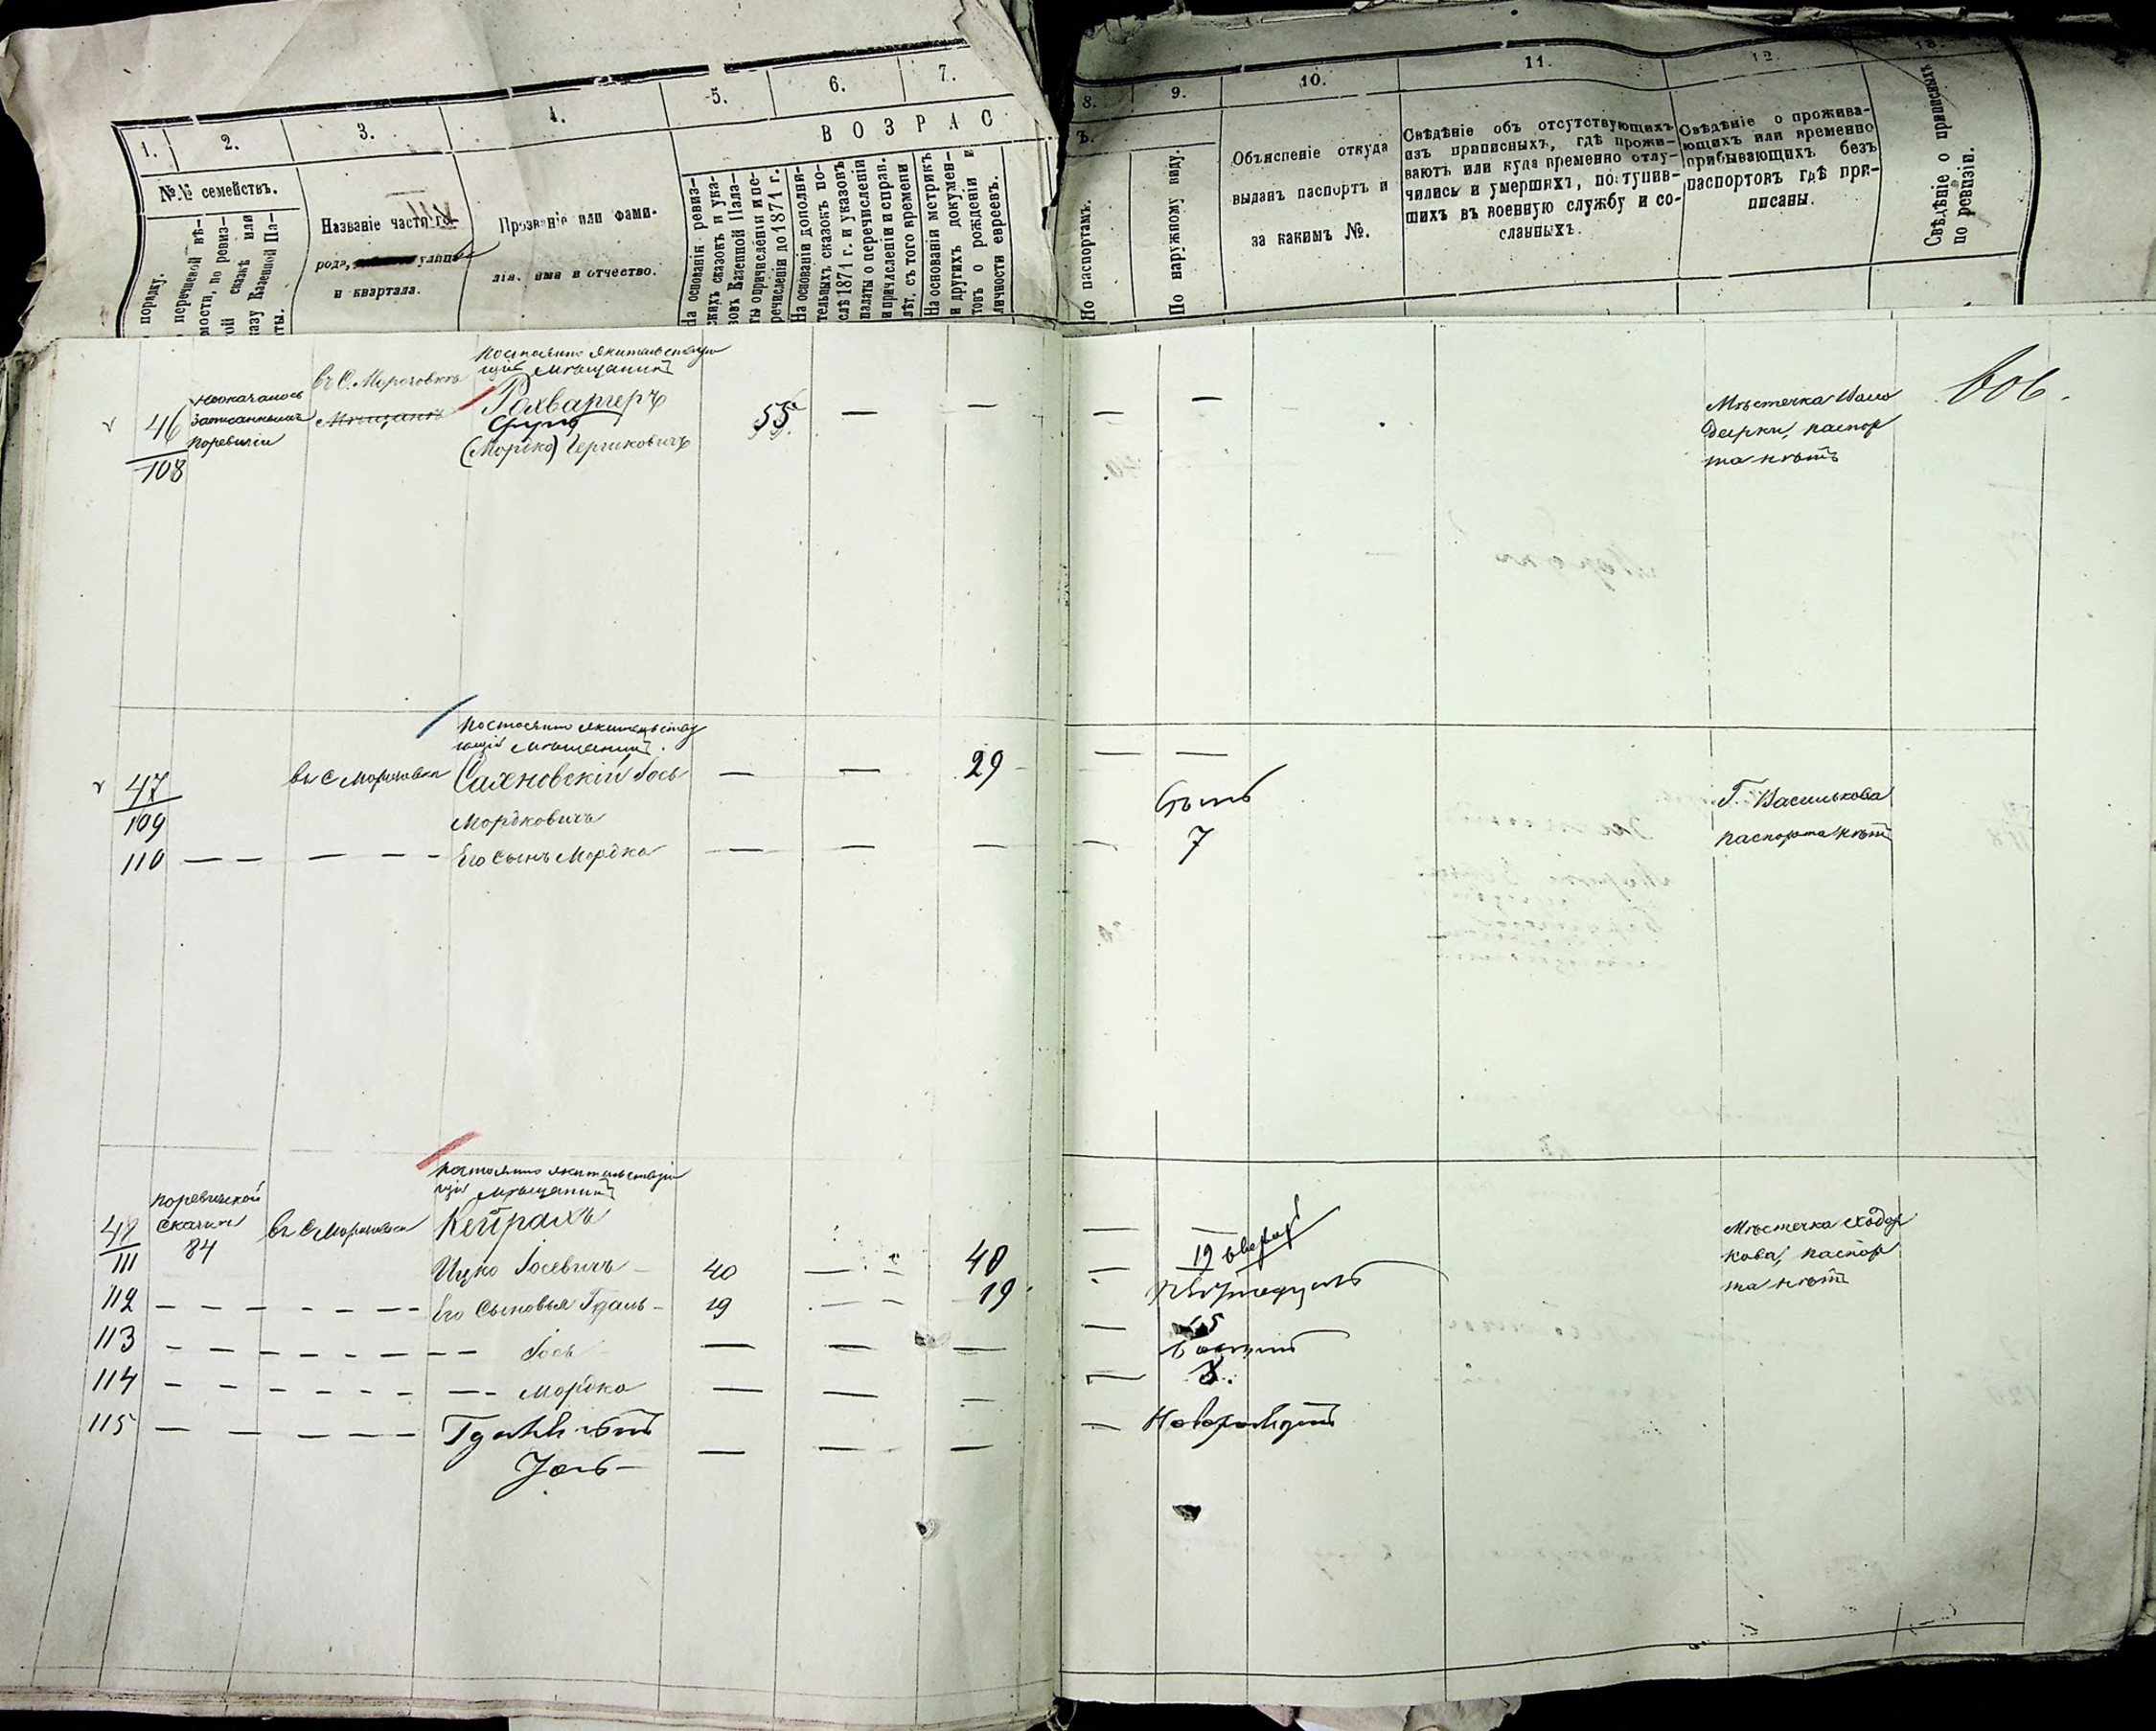 1.
2.
3.
4.
5.
6.
7.
8.
9.
10.
11.
12.
13.
№№ семействъ.
порядку.
перечневой вѣ-
мости, по ревиз-
ой сказкѣ или
казу Казенной Па-
ты.
Названіе части го-
рода, улицы
и квартала.
Прозваніе или фами-
лія, имя и отчество.
ВОЗРАС
На основаніи ревиз-
скихъ сказокъ и ука-
зовъ Казенной Пала-
ты о причисленіи и пе-
речисленіи до 1871 г.
На основаніи дополни-
тельныхъ сказокъ по-
слѣ 1871 г. и указовъ
палаты о перечисленіи
и причисленіи и справ.
лѣт. съ того времени
На основаніи метрикъ
и другихъ докумен-
товъ о рожденіи и
личности евреевъ.
Ъ.
По паспортамъ.
По наружному виду.
Объясненіе откуда
выданъ паспортъ и
за какимъ №.
Свѣдѣніе объ отсутствующихъ
изъ приписныхъ, гдѣ прожи-
ваютъ или куда временно отлу-
чились и умершихъ, поступив-
шихъ въ военную службу и со-
сланныхъ.
Свѣдѣніе о прожива-
ющихъ или временно
прибывающихъ безъ
паспортовъ гдѣ при-
писаны.
Свѣдѣніе о приписныхъ
по ревизіи.
46
108
неоказалось
записаннымъ
поревизіи
въ С. Морозовкѣ
Мѣщанинъ
постоянно жительствую
щій мѣщанинъ
Рахваргеръ
Сруль
(Мордко) Гершковичъ
55
— — — —
Мѣстечка Воло
дарки, паспор
та нѣтъ
606.
47
109
въ С Морозовки
постоянно жительству
ющій мѣщанинъ.
Сахновскій Іось
Мордковичъ
— — 29 — —
Г. Василькова
паспорта нѣтъ
110 — — — —
Его сынъ Мордко
— — — —
7
48
111
поревизской
сказки
84
въ С Морозовки
постоянно жительствую
щій мѣщанинъ
Кейрахъ
Ицко Іосевичъ
40 — — 40 —
Мѣстечка Сходор
кова, паспор
та нѣтъ
112 — — — — — — —
Его Сыновья Гдаль
19 — — 19
19
113 — — — — — — — —
Іось
— — — —
15
114 — — — — — — — —
Мордко
— — — —
115 — — — — — —
— — — —